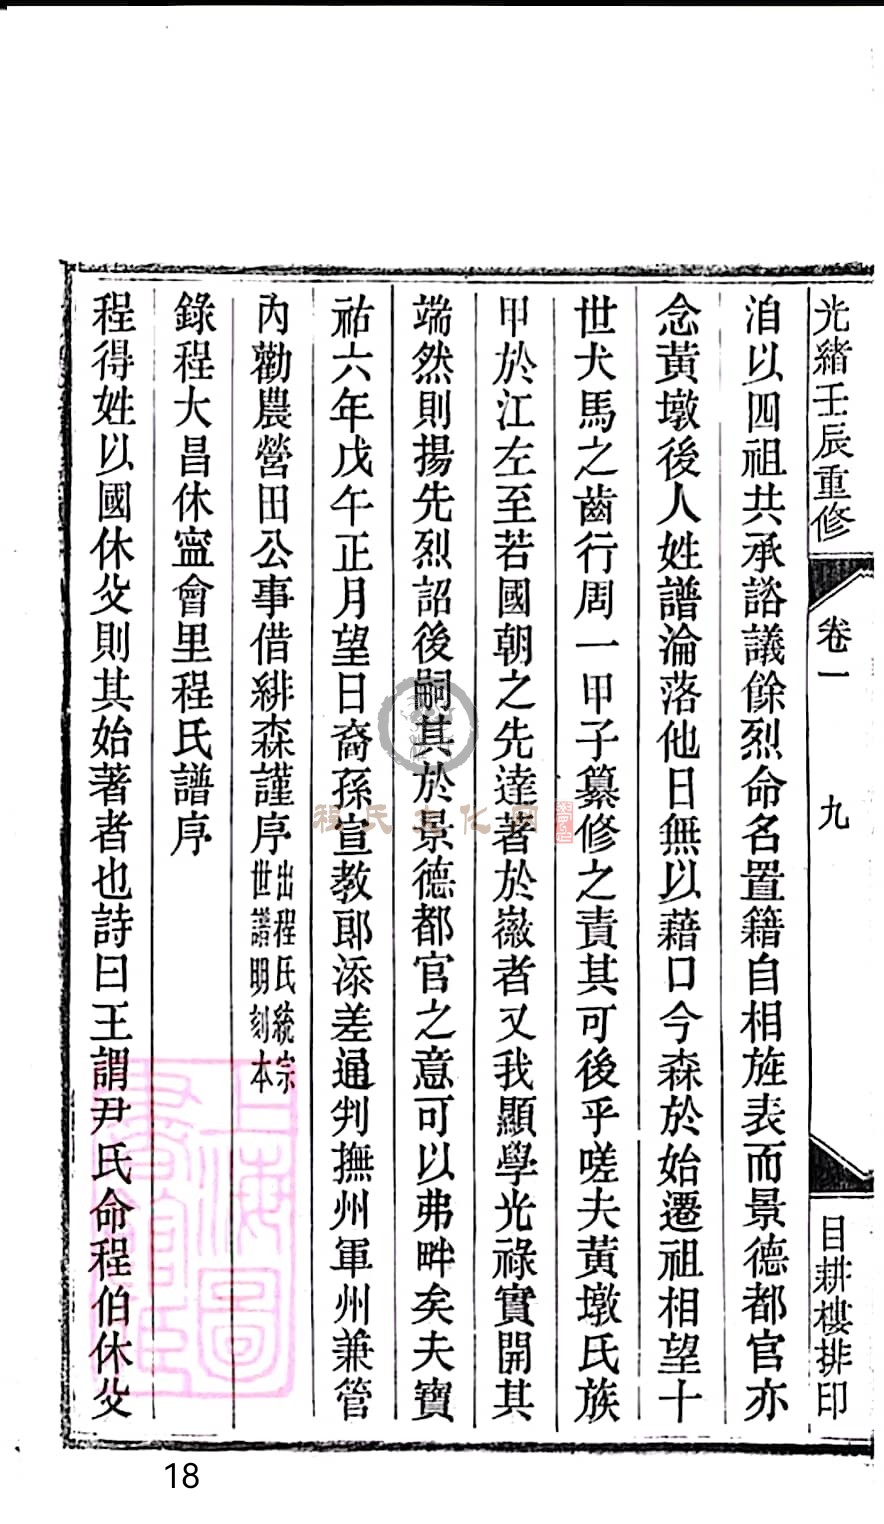 光緒壬辰重修
卷一
九
目耕樓排印
洎以四祖共承諮議餘烈命名置籍自相旌表而景德都官亦
念黃墩後人姓譜淪落他日無以藉口今森於始遷祖相望十
世犬馬之齒行周一甲子纂修之責其可後乎嗟夫黃墩氏族
甲於江左至若國朝之先達著於徽者又我顯學光祿實開其
端然則揚先烈詔後嗣其於景德都官之意可以弗畔矣夫寶
祐六年戊午正月望日裔孫宣教郎添差通判撫州軍州兼管
內勸農營田公事借緋森謹序出程氏統宗
世譜明刻本
錄程大昌休寍會里程氏譜序
程得姓以國休父則其始著者也詩曰王謂尹氏命程伯休父
程氏文化网
上海圖書館藏
18